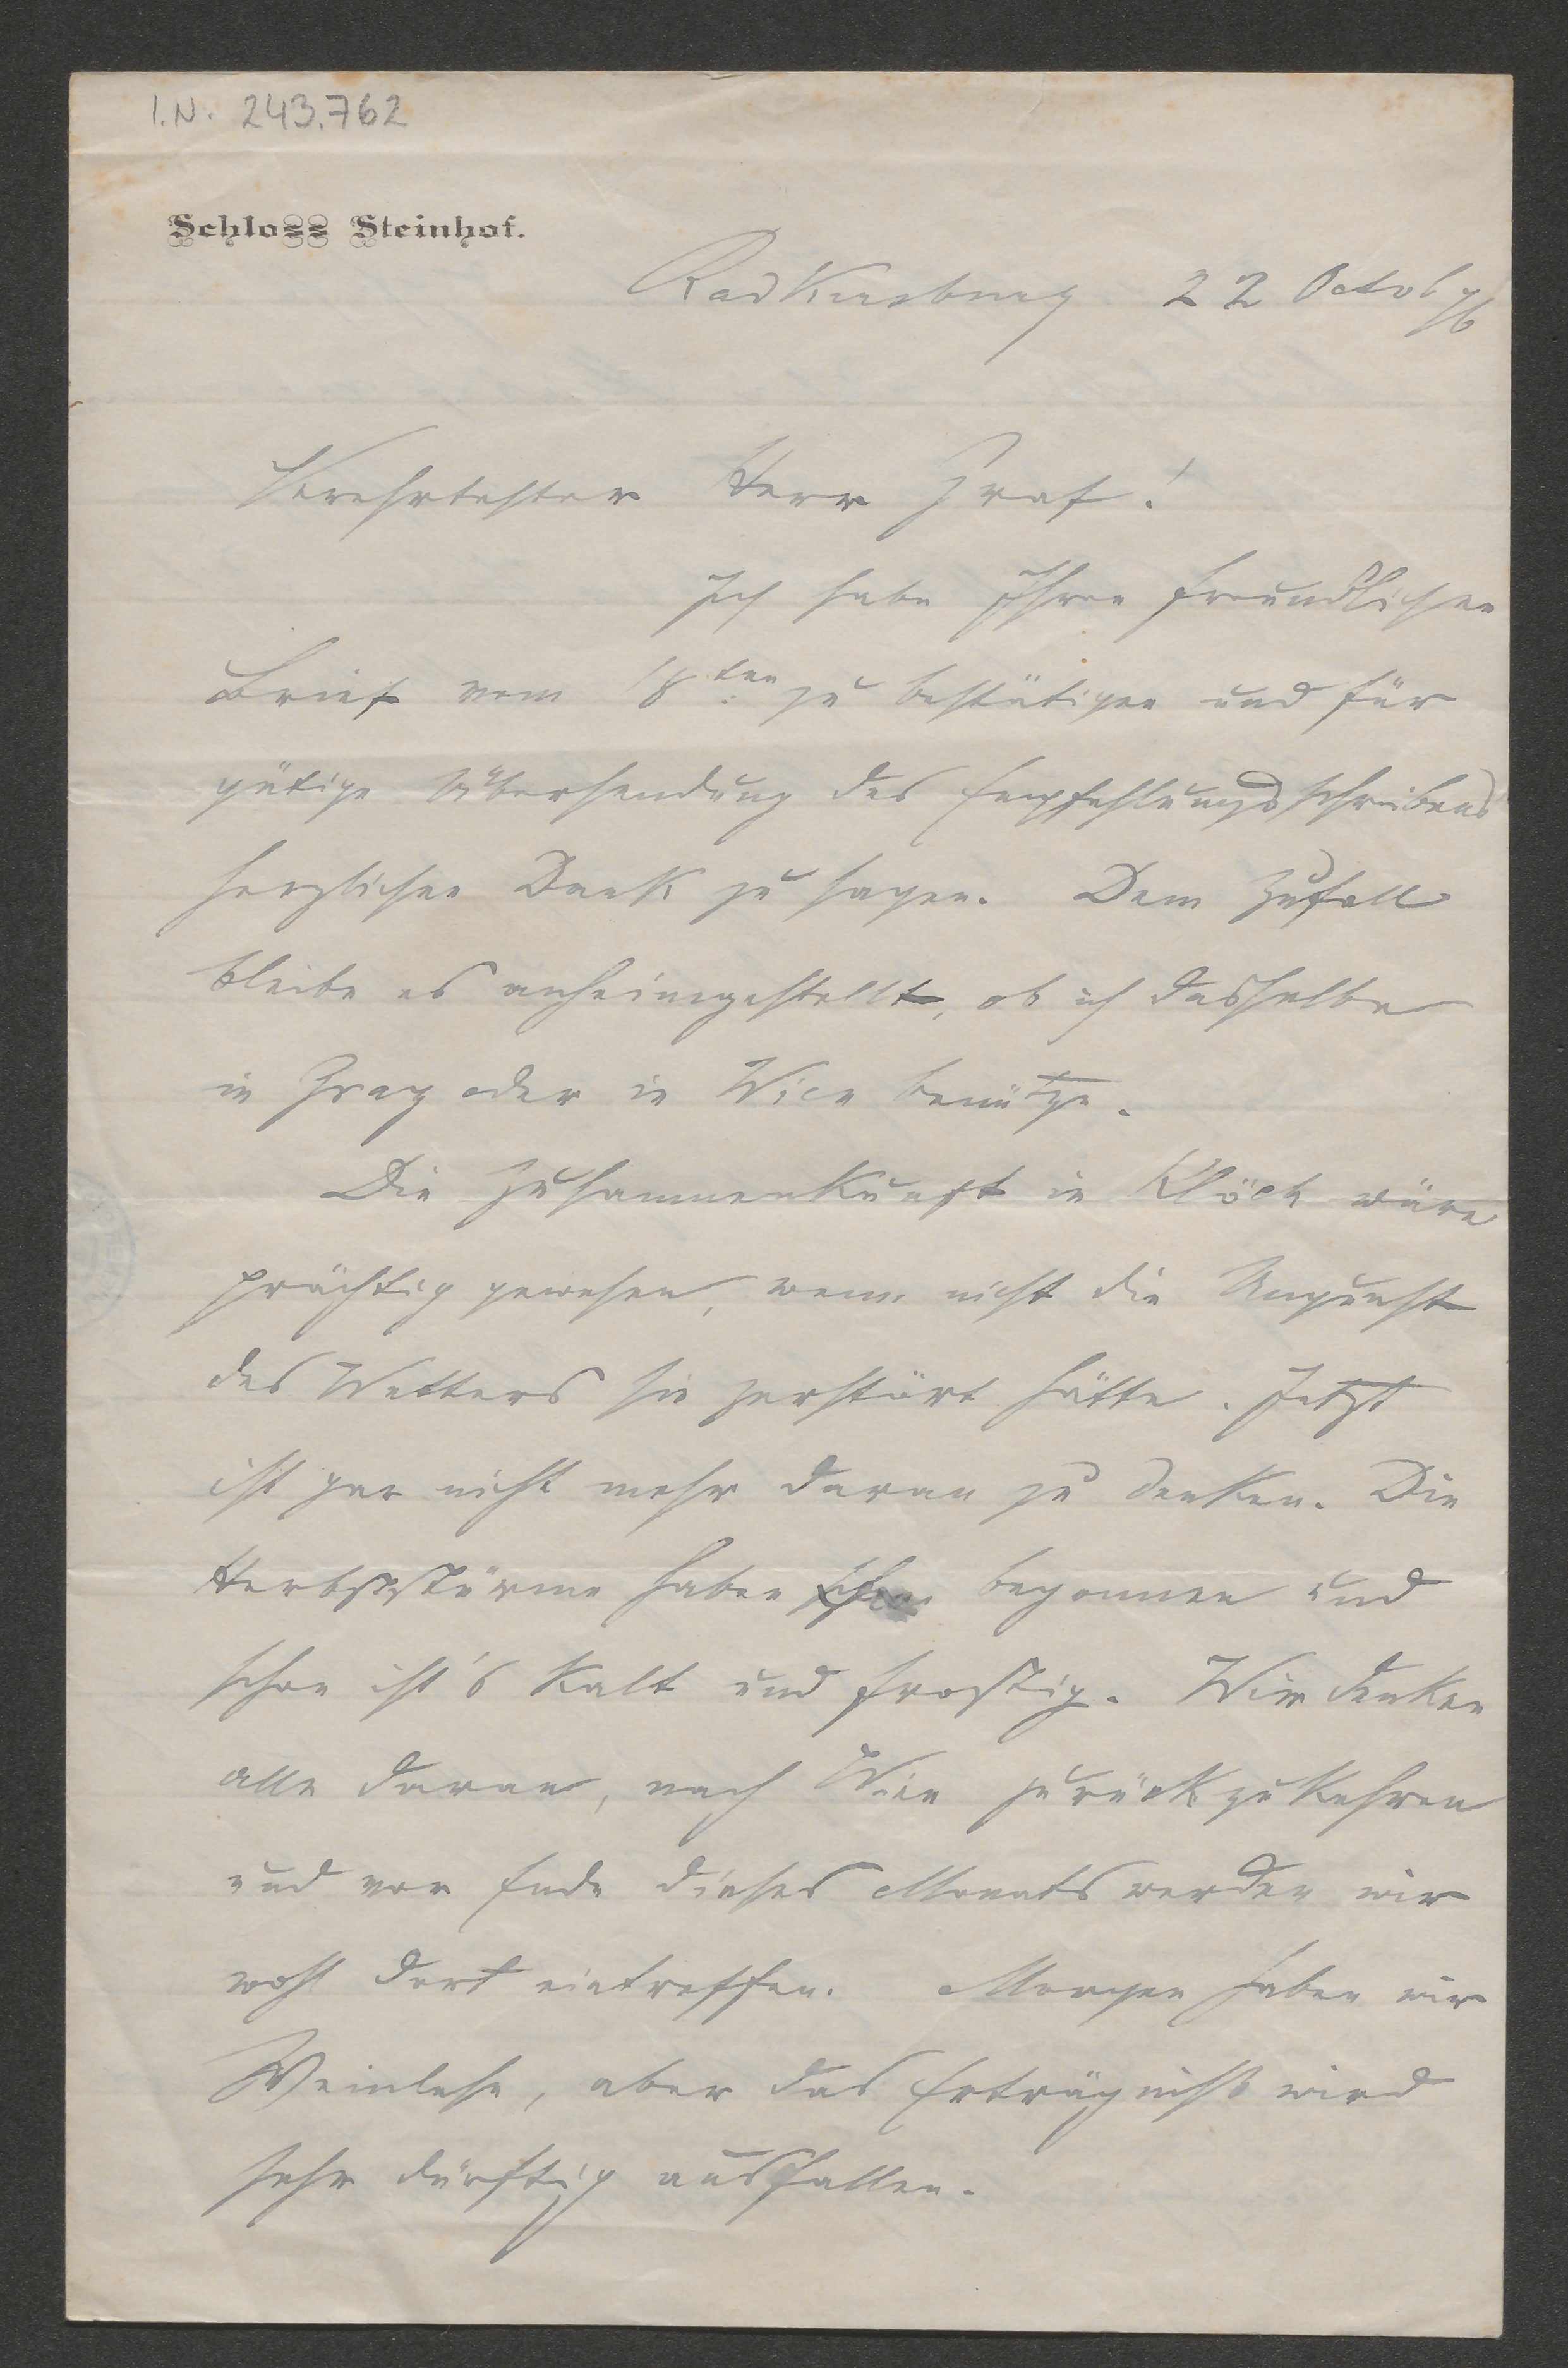 I.N. 243.762
Schloss Steinhof.
Radkersburg 22 Octob 76
Verehrtester Herr Graf!
Ich habe Ihren freundlichen
Brief vom 18ten zu bestätigen und für
gütige Übersendung des Empfehlungsschreibens
herzlichen Dank zu sagen. Dem Zufall
bleibe es anheimgestellt, ob ich dasselbe
in Graz oder in Wien benütze.
Die Zusammenkunft in Klöch wäre
prächtig gewesen, wenn nicht die Ungunst
des Wetters sie zerstört hätte. Jetzt
ist gar nicht mehr daran zu denken. Die
Herbststürme haben begonnen und
schon ist's kalt und frostig. Wir denken
alle daran, nach Wien zurückzukehren
und vor Ende dieses Monats werden wir
wohl dort eintreffen. Morgen haben wir
Weinlese, aber das Erträgniß wird
sehr dürftig ausfallen.